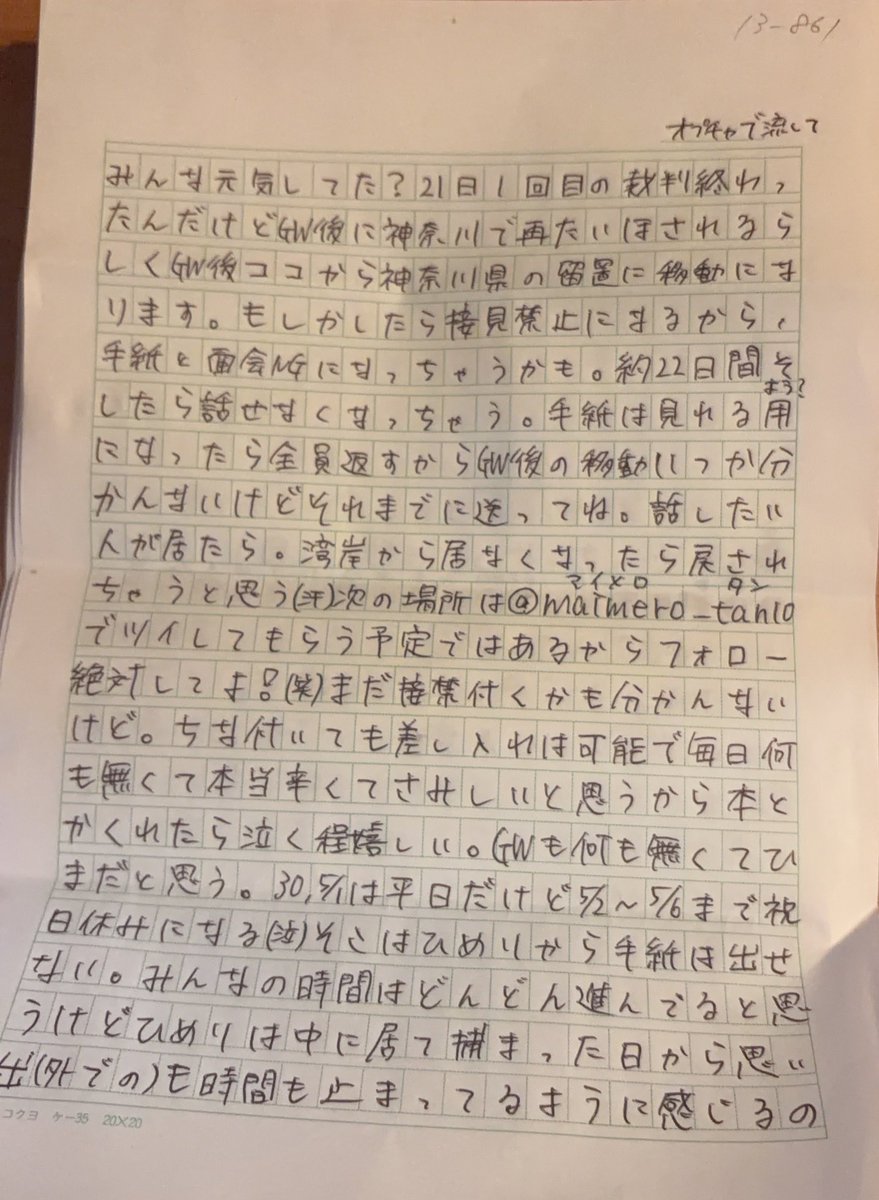 13-861
オプチャで流して
みんな元気してた?21日1回目の裁判終わっ
たんだけどGW後に神奈川で再たいほされるら
しくGW後ココから神奈川県の留置に移動にな
ります。もしかしたら接見禁止になるから、
手紙と面会NGになっちゃうかも。約22日間そ
よう?
したら話せなくなっちゃう。手紙は見れる用
になったら全員返すからGW後の移動いつか分
かんないけどそれまでに送ってね。話したい
人が居たら。湾岸から居なくなったら戻され
マイメロ タン
ちゃうと思う(汗)次の場所は@maimero_tan10
でツイしてもらう予定ではあるからフォロー
絶対してよ!(笑)まだ接禁付くかも分かんない
けど。ちな付いても差し入れは可能で毎日何
も無くて本当辛くてさみしいと思うから本と
かくれたら泣く程嬉しい。GWも何も無くてひ
まだと思う。30,5/1は平日だけど5/2~5/6まで祝
日休みになる(泣)そこはひめりから手紙は出せ
ない。みんなの時間はどんどん進んでると思
うけどひめりは中に居て捕まった日から思い
出(外での)も時間も止まってるように感じるの
コクヨ ケー35 20×20